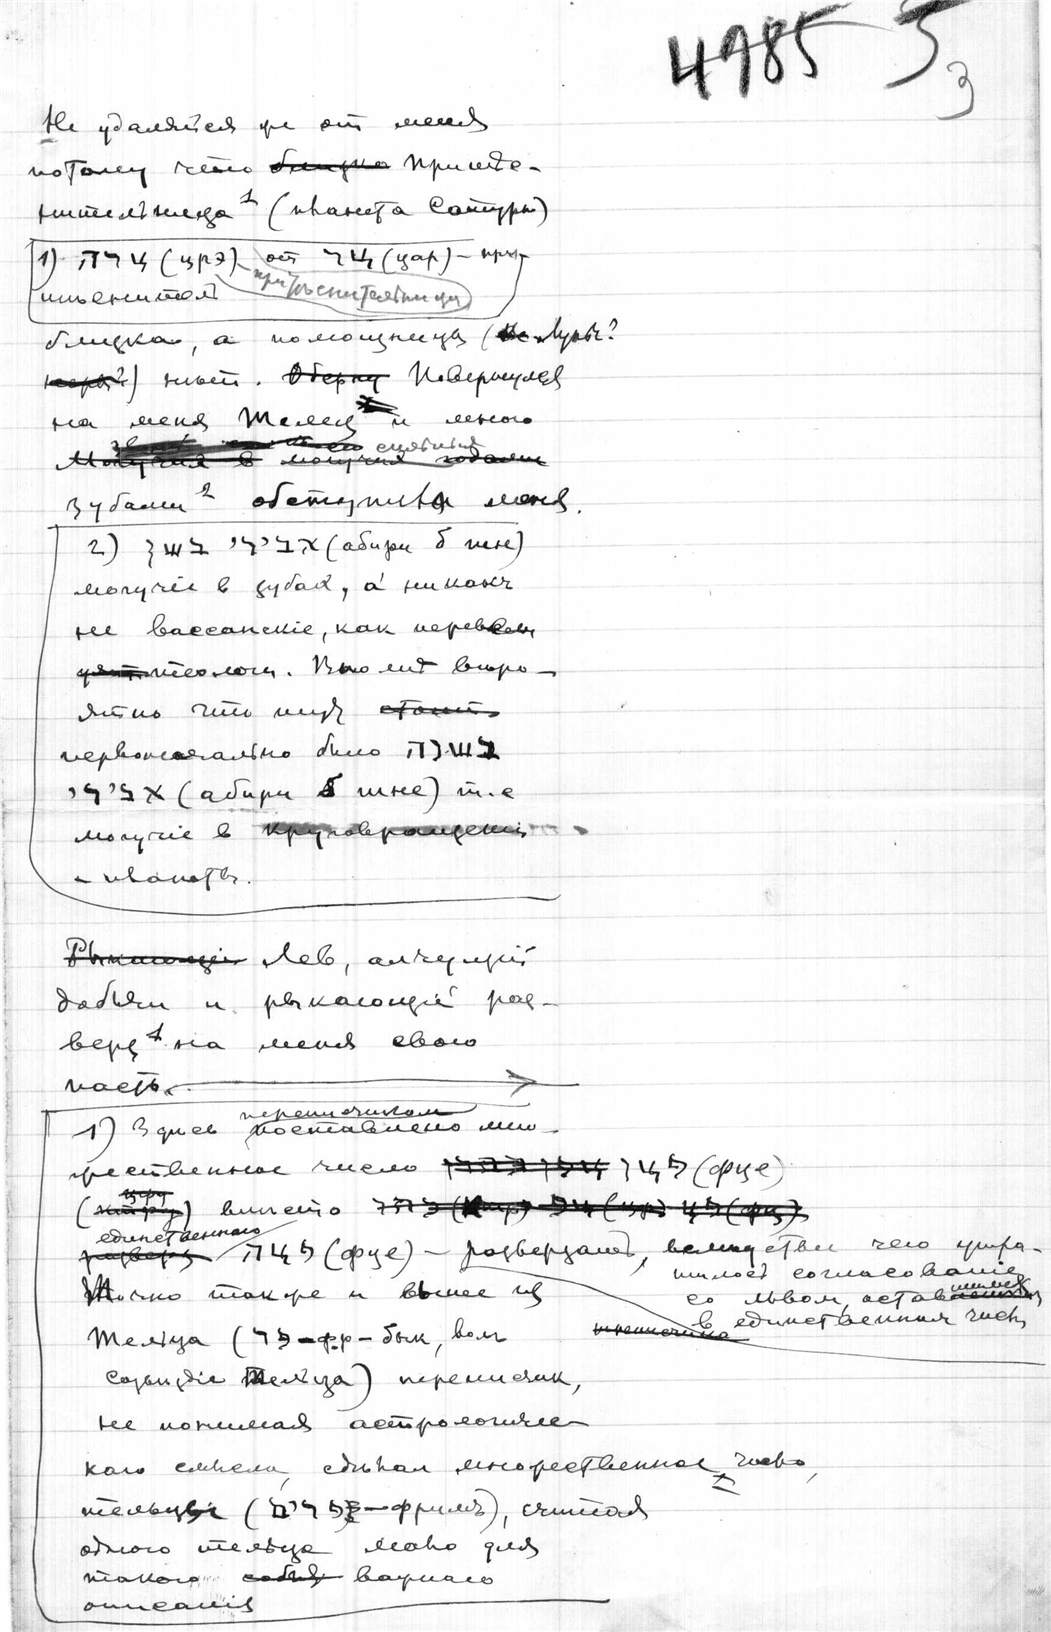 4985 5
3
Не удаляйся же от меня
потому что близка Притѣс-
нительница 1 (планета Сатурн)
1) צרה (црэ) от צר (цар) – при-
тѣснитель притѣснительница
близка, а помощницы (не Луны?
) нѣт. Оберну Повернулся
на меня Телец и много
сильный
Могучия в могучия
зубами 2 обступили меня.
2) אבירי בשן (абири б шн)
могучіе в зубах, а никакъ
не вассанскіе, как перев
теологи. Вполнѣ вѣро-
ятно что тут стоит
первоначально было בשנה
אבירי (абири б шне) т.е
могучіе в круговращеніи
планетъ.
Рыкающій Лев, алчущій
добычи и рыкающій раз-
верз 1 на меня свою
пасть.
1) Здѣсь переписчиком поставлено мно-
жественное число פצו (фце)
вмѣсто
единственнаго
פצה (фце) – разверзает, вслѣдствіи чего утра-
тилось согласованіе
со львом, оставшимся
в единственном числѣ
Точно также и выше из
Тельца (פר – фр – бык, вол
созвѣздіе Тельца) переписчик,
не понимая астрологичес-
каго смысла, сдѣлал множественное число,
тельцы (פרים – фримъ), считая
одного тельца мало для
такого важнаго
описанія